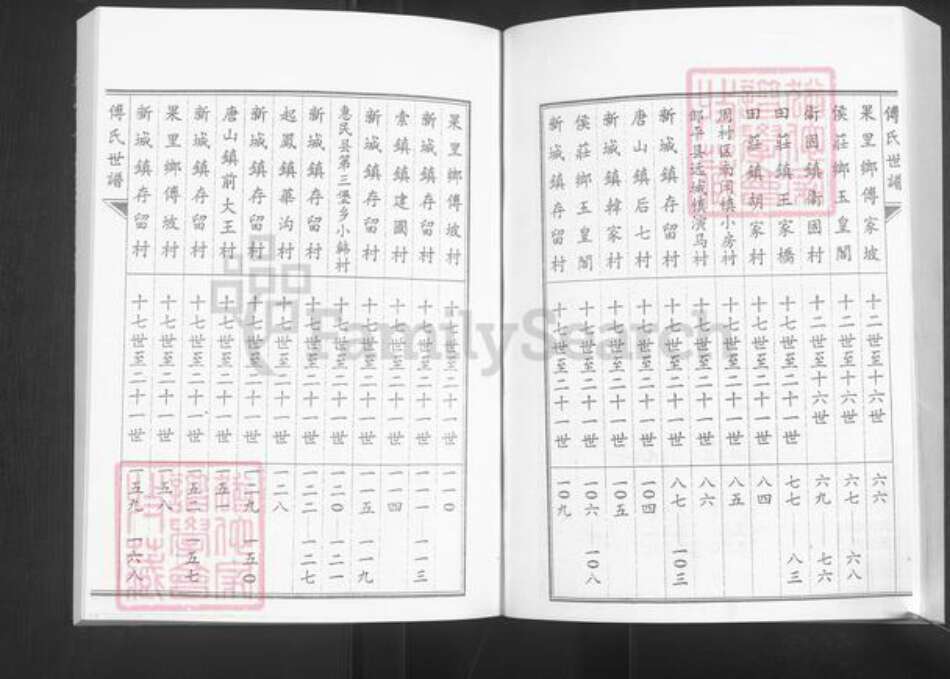 傅氏世譜
果里鄉傅家坡 十二世至十六世 六六
侯莊鄉玉皇閣 十二世至十六世 六七——六八
衛固鎮衛固村 十二世至十六世 六九——七六
田莊鎮王家橋 十七世至二十一世 七七——八三
田莊鎮胡家村 十七世至二十一世 八四
周村區南閆鎮小房村 十七世至二十一世 八五
鄒平县远城镇演马村 十七世至二十一世 八六
新城鎮存留村 十七世至二十一世 八七——一0三
唐山鎮后七村 十七世至二十一世 一0四
新城鎮韓家村 十七世至二十一世 一0五
侯莊鄉玉皇閣 十七世至二十一世 一0六——一0八
新城鎮存留村 十七世至二十一世 一0九
果里鄉傅坡村 十七世至二十一世 一一0
新城鎮存留村 十七世至二十一世 一一一——一一三
索鎮鎮建國村 十七世至二十一世 一一四
新城鎮存留村 十七世至二十一世 一一五——一一九
惠民县第三堡乡小 村 十七世至二十一世 一二0——一二一
新城鎮存留村 十七世至二十一世 一二二——一二七
起鳳鎮華沟村 十七世至二十一世 一二八
新城鎮存留村 十七世至二十一世 一二九——一五0
唐山鎮前大王村 十七世至二十一世 一五一
新城鎮存留村 十七世至二十一世 一五二——一五七
果里鄉傅坡村 十七世至二十一世 一五八
新城鎮存留村 十七世至二十一世 一五九——一六八
傅氏世譜
FamilySearch